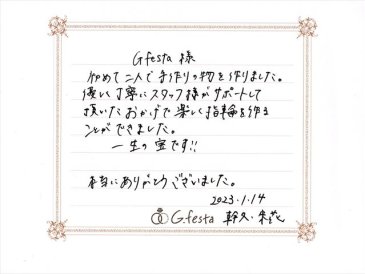 G.festa 様
初めて二人で手作りの物を作りました。
優しく丁寧にスタッフ様がサポートして
頂いたおかげで楽しく指輪を作る
ことができました。
一生の宝です!!
本当にありがとうございました。
2023.1.14
G.festa 幹久・朱花